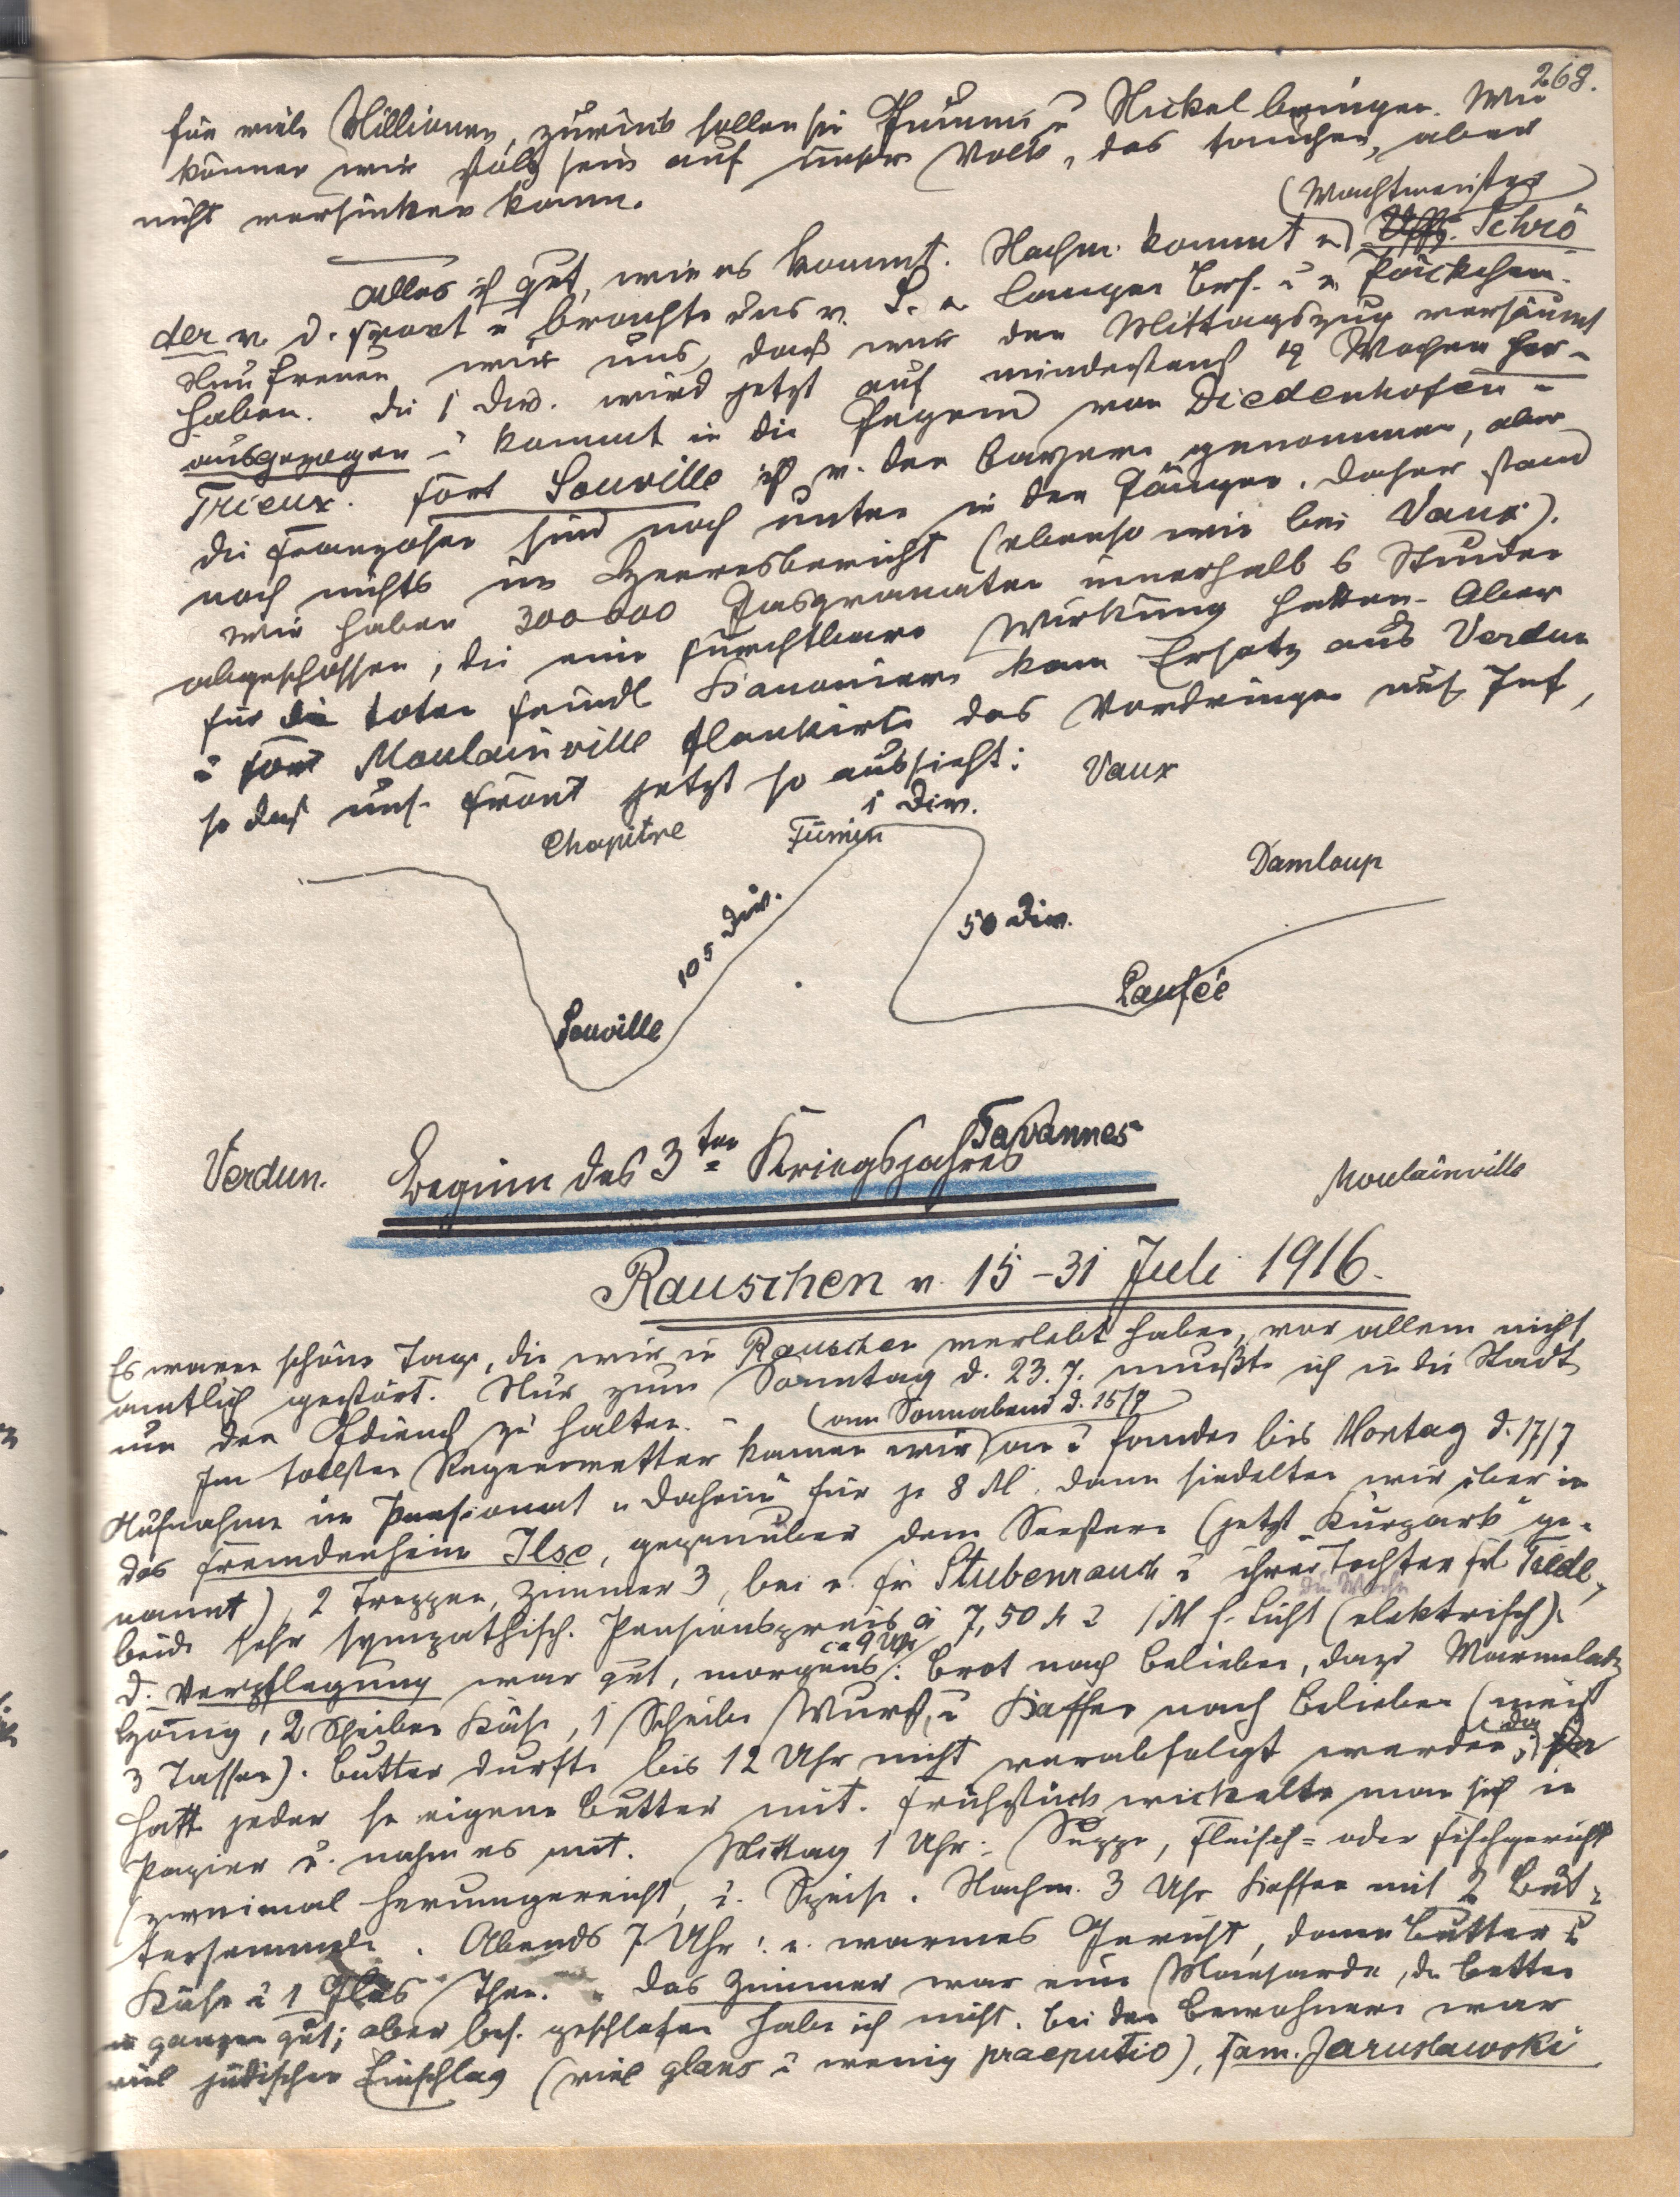 268.
für viele Millionen, zurück sollen sie Gummi u Nickel bringen. Wie
können wir stolz sein auf unser Volk, das tauchen, aber
nicht versinken kann.
(Wachtmeister)
Alles ist gut, wie es kommt. Nachm. kommt Schrö
der v. d. Front u brachte uns v. S. e. langen Brf. u e. Päckchen.
Nun freuen wir uns, daß wir den Mittagszug versäumt
haben. Die 1 Div. wird jetzt auf mindestens 4 Wochen her-
ausgezogen u kommt in die Gegend von Diedenhofen -
Trieux. Fort Souville ist v. den Bayern genommen, aber
die Franzosen sind noch unten in den Gängen. Daher stand
noch nichts im Heeresbericht (ebenso wie bei Vaux).
Wir haben 300 000 Gasgranaten innerhalb 6 Stunden
abgeschossen, die eine furchtbare Wirkung hatten. Aber
für die toten feindl Kanoniere kam Ersatz aus Verdun
u Fort Moulainville flankirte das Vordringen uns. Inf,
so daß uns. Front jetzt so aussieht:
Vaux
1 Div.
Chapitre
Fumin
Damloup
105 Div.
50 Div.
Laufée
Souville
Tavannes
Verdun.
Beginn des 3ten Kriegsjahres
Moulainville
Rauschen v. 15-31 Juli 1916.
Es waren schöne Tage, die wir in Rauschen verlebt haben, vor allem nicht
amtlich gestört. Nur zum Sonntag d. 23.7. mußte ich in die Stadt
um den Gdienst zu halten. -
(am Sonnabend d. 15/7
Im tollsten Regenwetter kamen wir an u fanden bis Montag d. 17/7
Aufnahme im Pensionat "Daheim" für je 8 M. Dann siedelten wir über in
das Fremdenheim Ilse, gegenüber dem Seestern (jetzt "Kurpark" ge-
nannt), 2 Treppen, Zimmer 3, bei e. Fr Stubenrauch u ihrer Tochter Frl Friedl,
die Woche
beide sehr sympathisch. Pensionspreis à 7,50 M u 1 M f. Licht (elektrisch).
ca 9 Uhr
D. Verpflegung war gut, morgens: Brot nach Belieben, dazu Marmelade
Honig, 2 Scheiben Käse, 1 Scheibe Wurst, u Kaffee nach Belieben (meist
3 Tassen). Butter durfte bis 12 Uhr nicht verabfolgt werden,
da
hatt jeder se eigene Butter mit. Frühstück wickelte man sich in
Papier u. nahm es mit. Mittag 1 Uhr: Suppe, Fleisch= oder Fischgericht
zweimal herumgereicht, u. Speise. Nachm. 3 Uhr Kaffee mit 2 But=
tersemmeln. Abends 7 Uhr: e. warmes Gericht, dann Butter u
Käse u 1 Glas Thee. Das Zimmer war eine Mansarde, die Betten
im ganzen gut; aber bes. geschlafen habe ich nicht. Bei den Bewohnern war
viel jüdischer Einschlag (viel glans u wenig praeputio), Fam. Jaruslawski